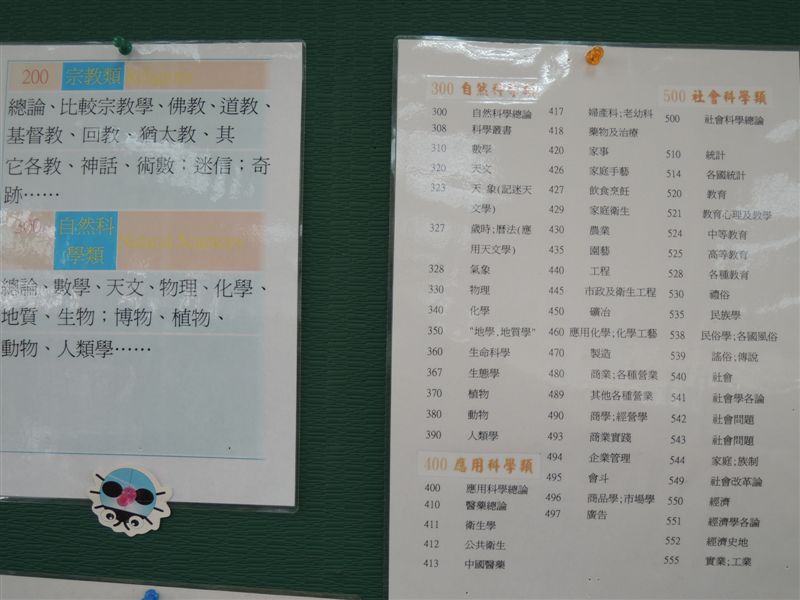 200 宗教類 Religions
總論、比較宗教學、佛教、道教、
基督教、回教、猶太教、其
它各教、神話、術數；迷信；奇
跡……
300 自然科
學類 Natural Sciences
總論、數學、天文、物理、化學、
地質、生物；博物、植物、
動物、人類學……
300 自然科學類
300 自然科學總論
308 科學叢書
310 數學
320 天文
323 天 象(記述天
文學)
327 歲時;曆法(應
用天文學)
328 氣象
330 物理
340 化學
350 "地學,地質學"
360 生命科學
367 生態學
370 植物
380 動物
390 人類學
400 應用科學類
400 應用科學總論
410 醫藥總論
411 衛生學
412 公共衛生
413 中國醫藥
417 婦產科;老幼科
418 藥物及治療
420 家事
426 家庭手藝
427 飲食烹飪
429 家庭衛生
430 農業
435 園藝
440 工程
445 市政及衛生工程
450 礦冶
460 應用化學;化學工藝
470 製造
480 商業;各種營業
489 其他各種營業
490 商學;經營學
493 商業實踐
494 企業管理
495 會斗
496 商品學;市場學
497 廣告
500 社會科學類
500 社會科學總論
510 統計
514 各國統計
520 教育
521 教育心理及教學
524 中等教育
525 高等教育
528 各種教育
530 禮俗
535 民族學
538 民俗學;各國風俗
539 謠俗;傳說
540 社會
541 社會學各論
542 社會問題
543 社會問題
544 家庭;族制
549 社會改革論
550 經濟
551 經濟學各論
552 經濟史地
555 實業;工業